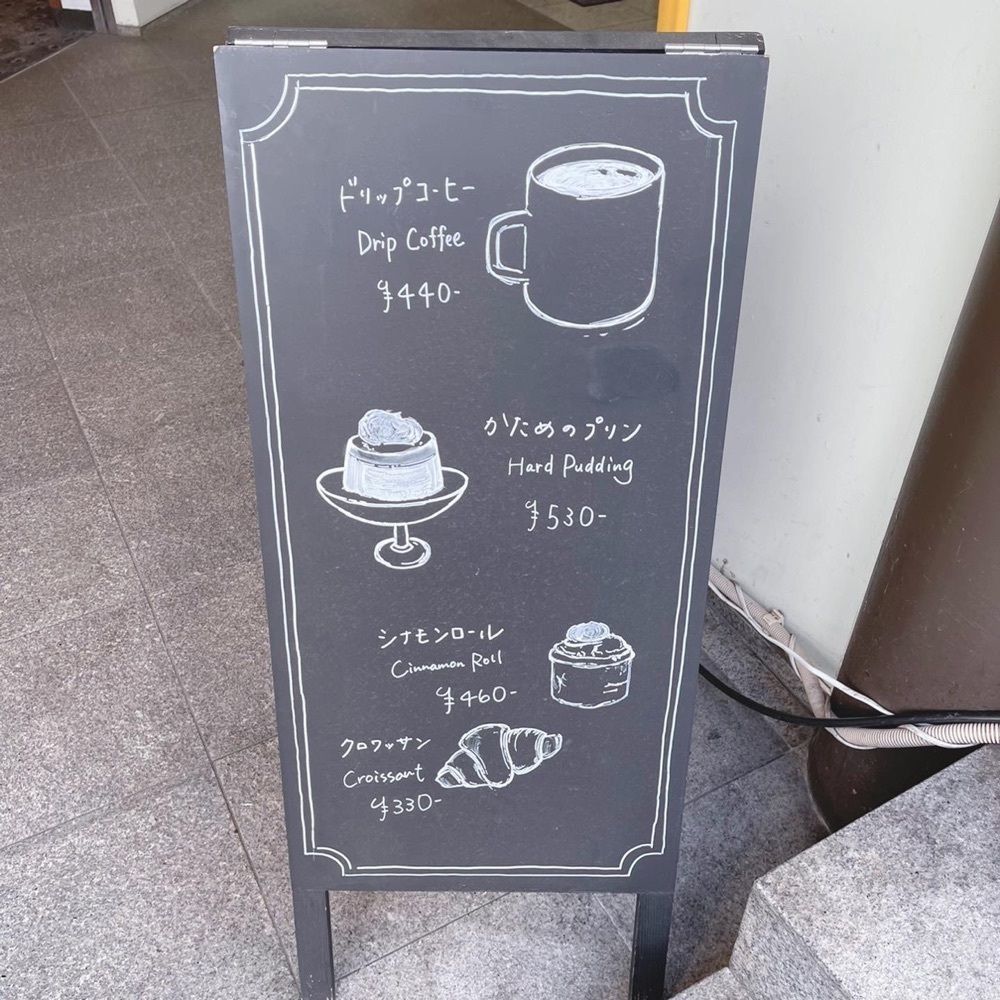 ドリップコーヒー
Drip Coffee
¥440-
かためのプリン
Hard Pudding
¥530-
シナモンロール
Cinnamon Roll
¥460-
クロワッサン
Croissant
¥330-